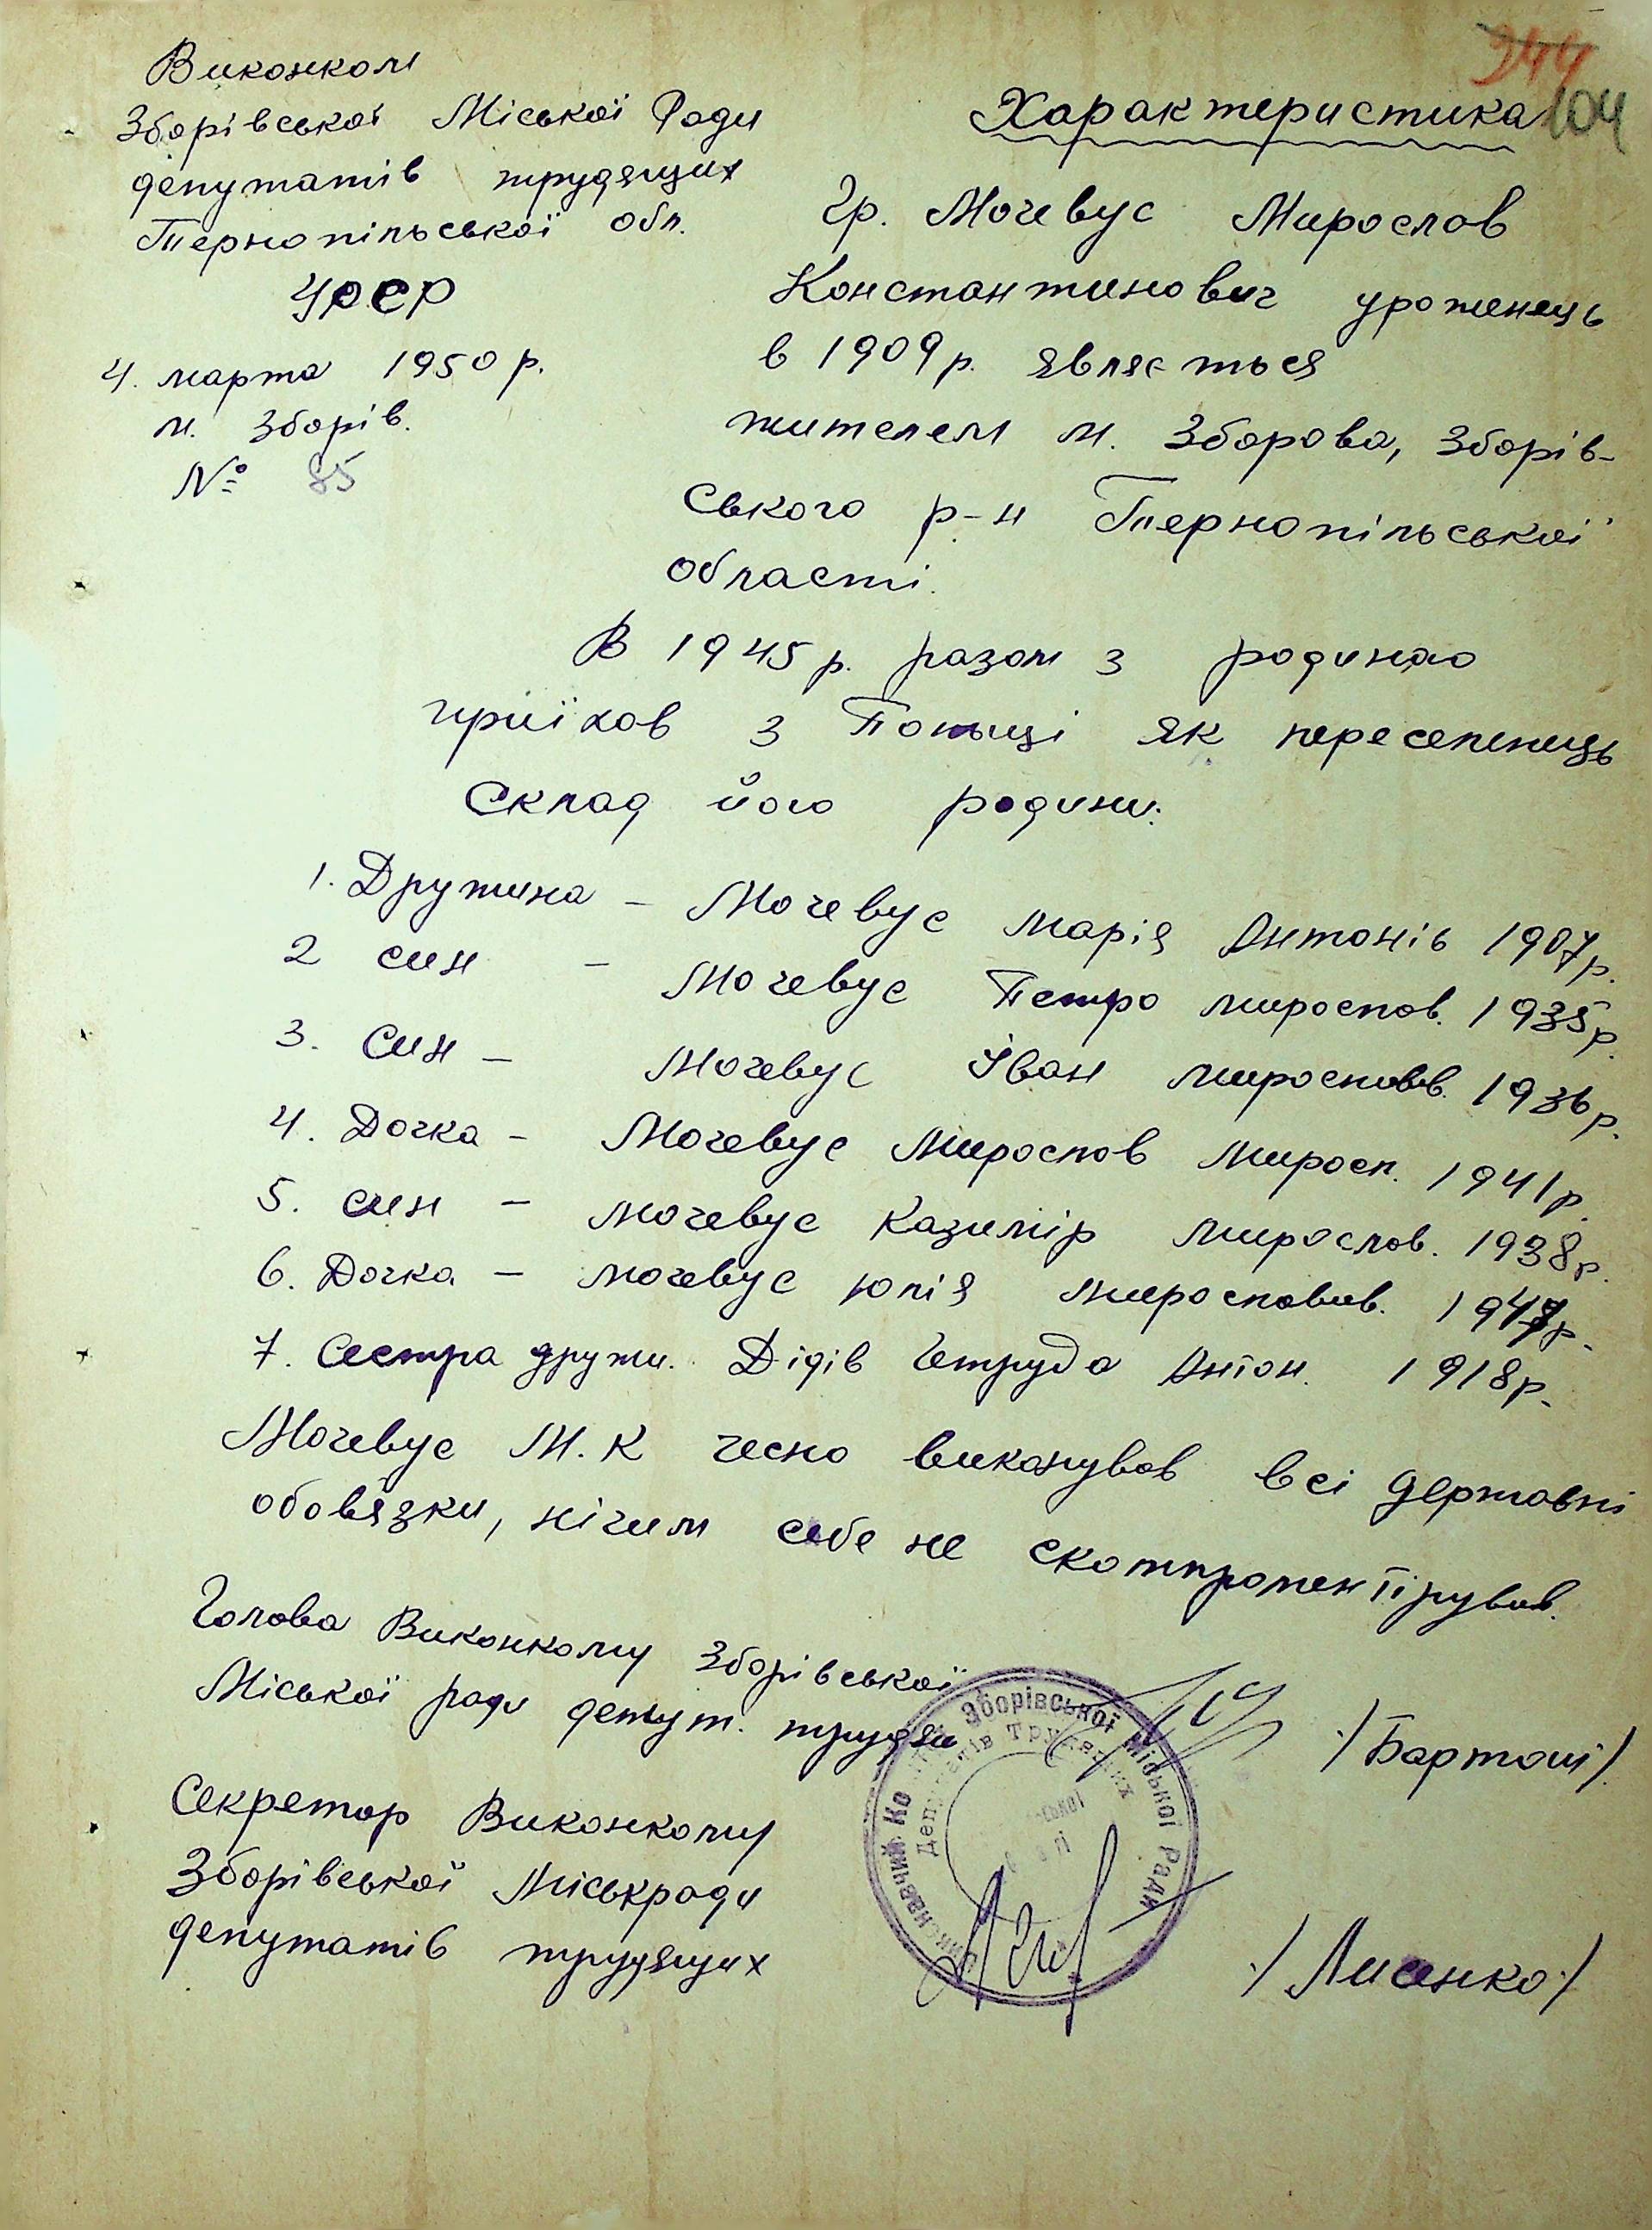 Виконком
Зборівської Міської Ради
депутатів трудящих
Тернопільської обл.
УРСР
4. марта 1950 р.
м. Зборів.
№ 85
244
104
Характеристика
Гр. Мочевус Мирослав
Константинович уроженець
в 1909 р. являється
жителем м. Зборова, Зборів-
ського р-н Тернопільської
області.
В 1945 р. разом з родиною
приїхав з Польщі як переселенець
Склад його родини:
1. Дружина – Мочевус Марія Антонів 1907 р.
2 син – Мочевус Петро Мирослав. 1935 р.
3. Син – Мочевус Іван Мирославов. 1936 р.
4. Дочка – Мочевус Мирослав Миросл. 1941 р.
5. син – Мочевус Казимір Мирослав. 1938 р.
6. Дочка – Мочевус Юлія Мирославів. 1947 р.
7. Сестра дружи. Дідів Антон. 1918 р.
Мочевус М. К чесно виконував всі державні
обовязки, нічим себе не скомпроментірував.
Голова Виконкому Зборівської
Міської ради депут. трудящ
./ Бартош /.
Секретар Виконкому
Зборівської Міськради
депутатів трудящих
./ Лисенко ./
Виконавчий Ко Зборівської Міської Ради
Депутатів Трудящих